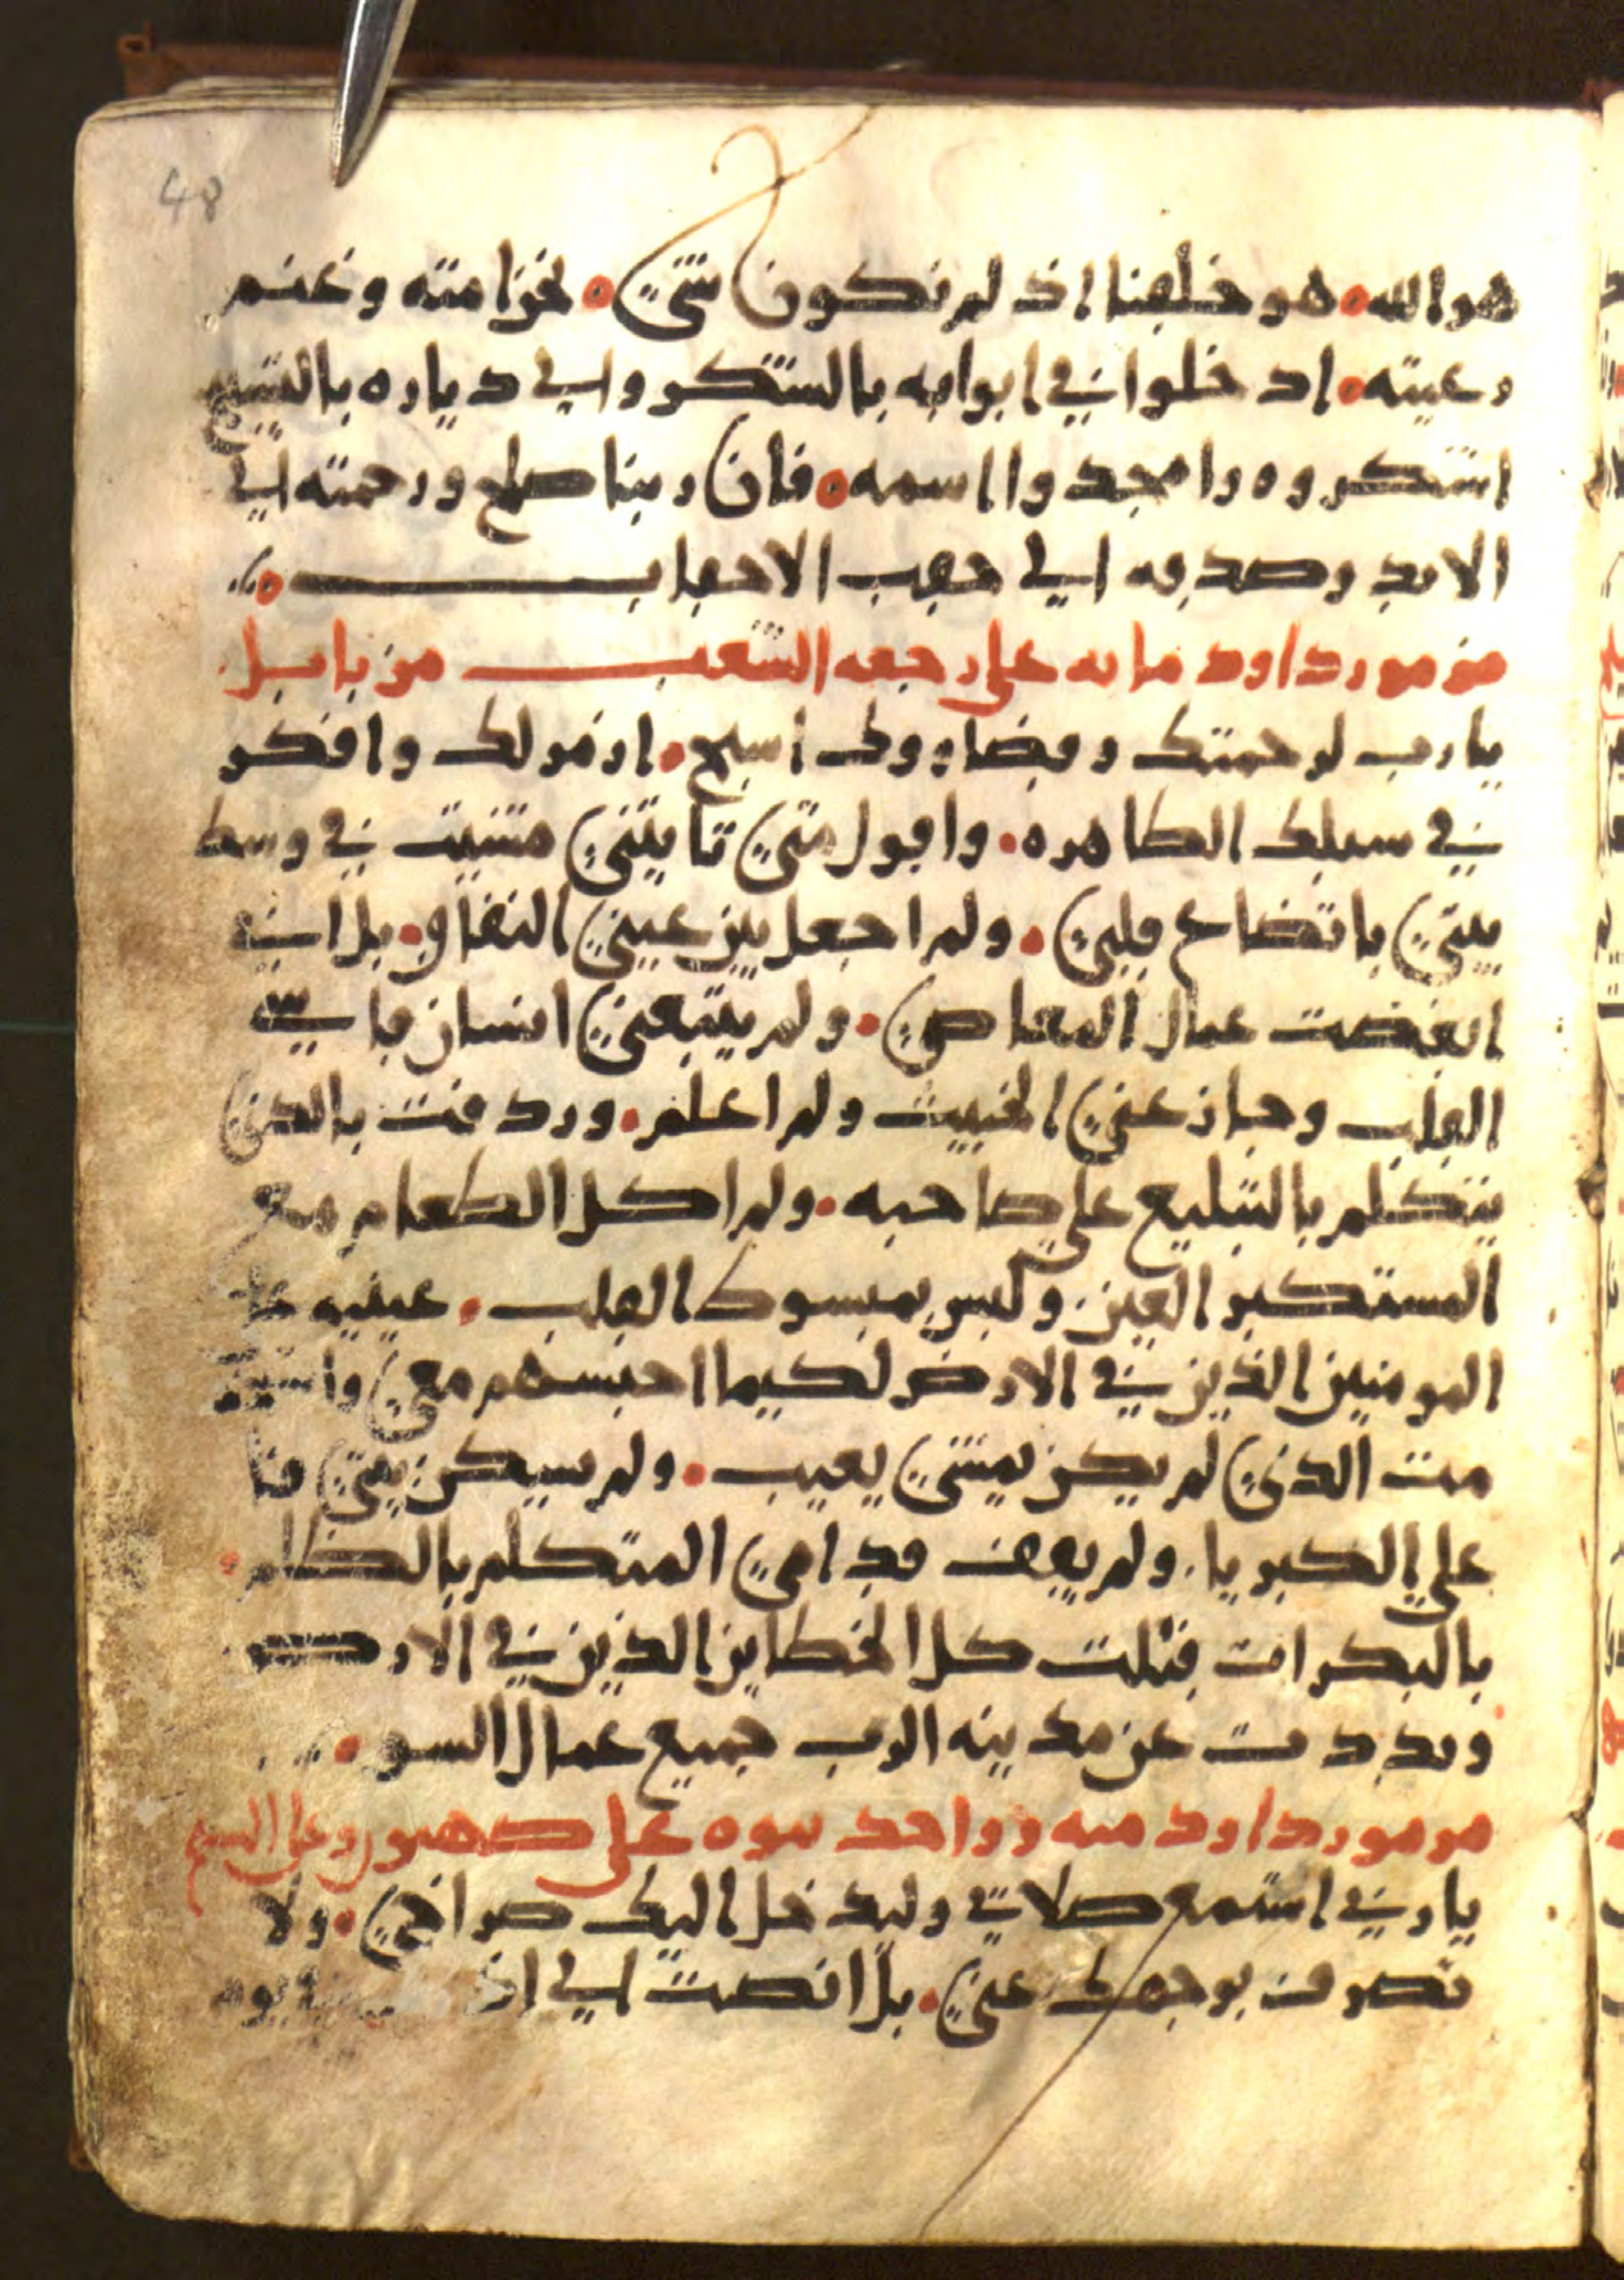 48
هو الله هو خلقنا اذ لم نكون شي نحن امته وغنم
رعيته ادخلوا في ابوابه بالشكر والي دياره بالتسبيح
اشكروه وا مجدوا اسمه فان ربنا صلح ورحمته الي
الابد وصدقه الي حقب الاحقاب
مزمور داود مايه علي رجعه الشعب من بابل
يا رب لرحمتك وقضاووك اسبح ارمر لك وافكر
في سبلك الطاهره واقول متي تاتيني مشيت في وسط
بيتي باتضاع قلبي ولم اجعل بين عيني النفاق بل اني
ابغضت عمال المعاصي ولم يتبعني انسان قاسي
القلب وجاز عني الخبيث ولم اعلم وردفت بالدي
يتكلم بالتبليع علي صاحبه ولم اكل الطعام مع
المستكبر العين وليس بمبسوط القلب عينيه علي
المومنين الذين في الارض لكيما احبسهم معي
مت الذي لم يكن يمشي بعيب ولم يسكن بيتي
علي الكبريا ولم يقف قدامي المتكلم بالظلم
بالبكرات قتلت كل الخطاين الذين في الارض
وبددت عن مدينه الرب جميع عمال السو
مزمور داود ميه وواحد نبوه علي صهيون وعلي المسيح
يا رب استمع صلاتي وليدخل اليك صراخي ولا
تصرف بوجهك عني بل انصت الي يوم